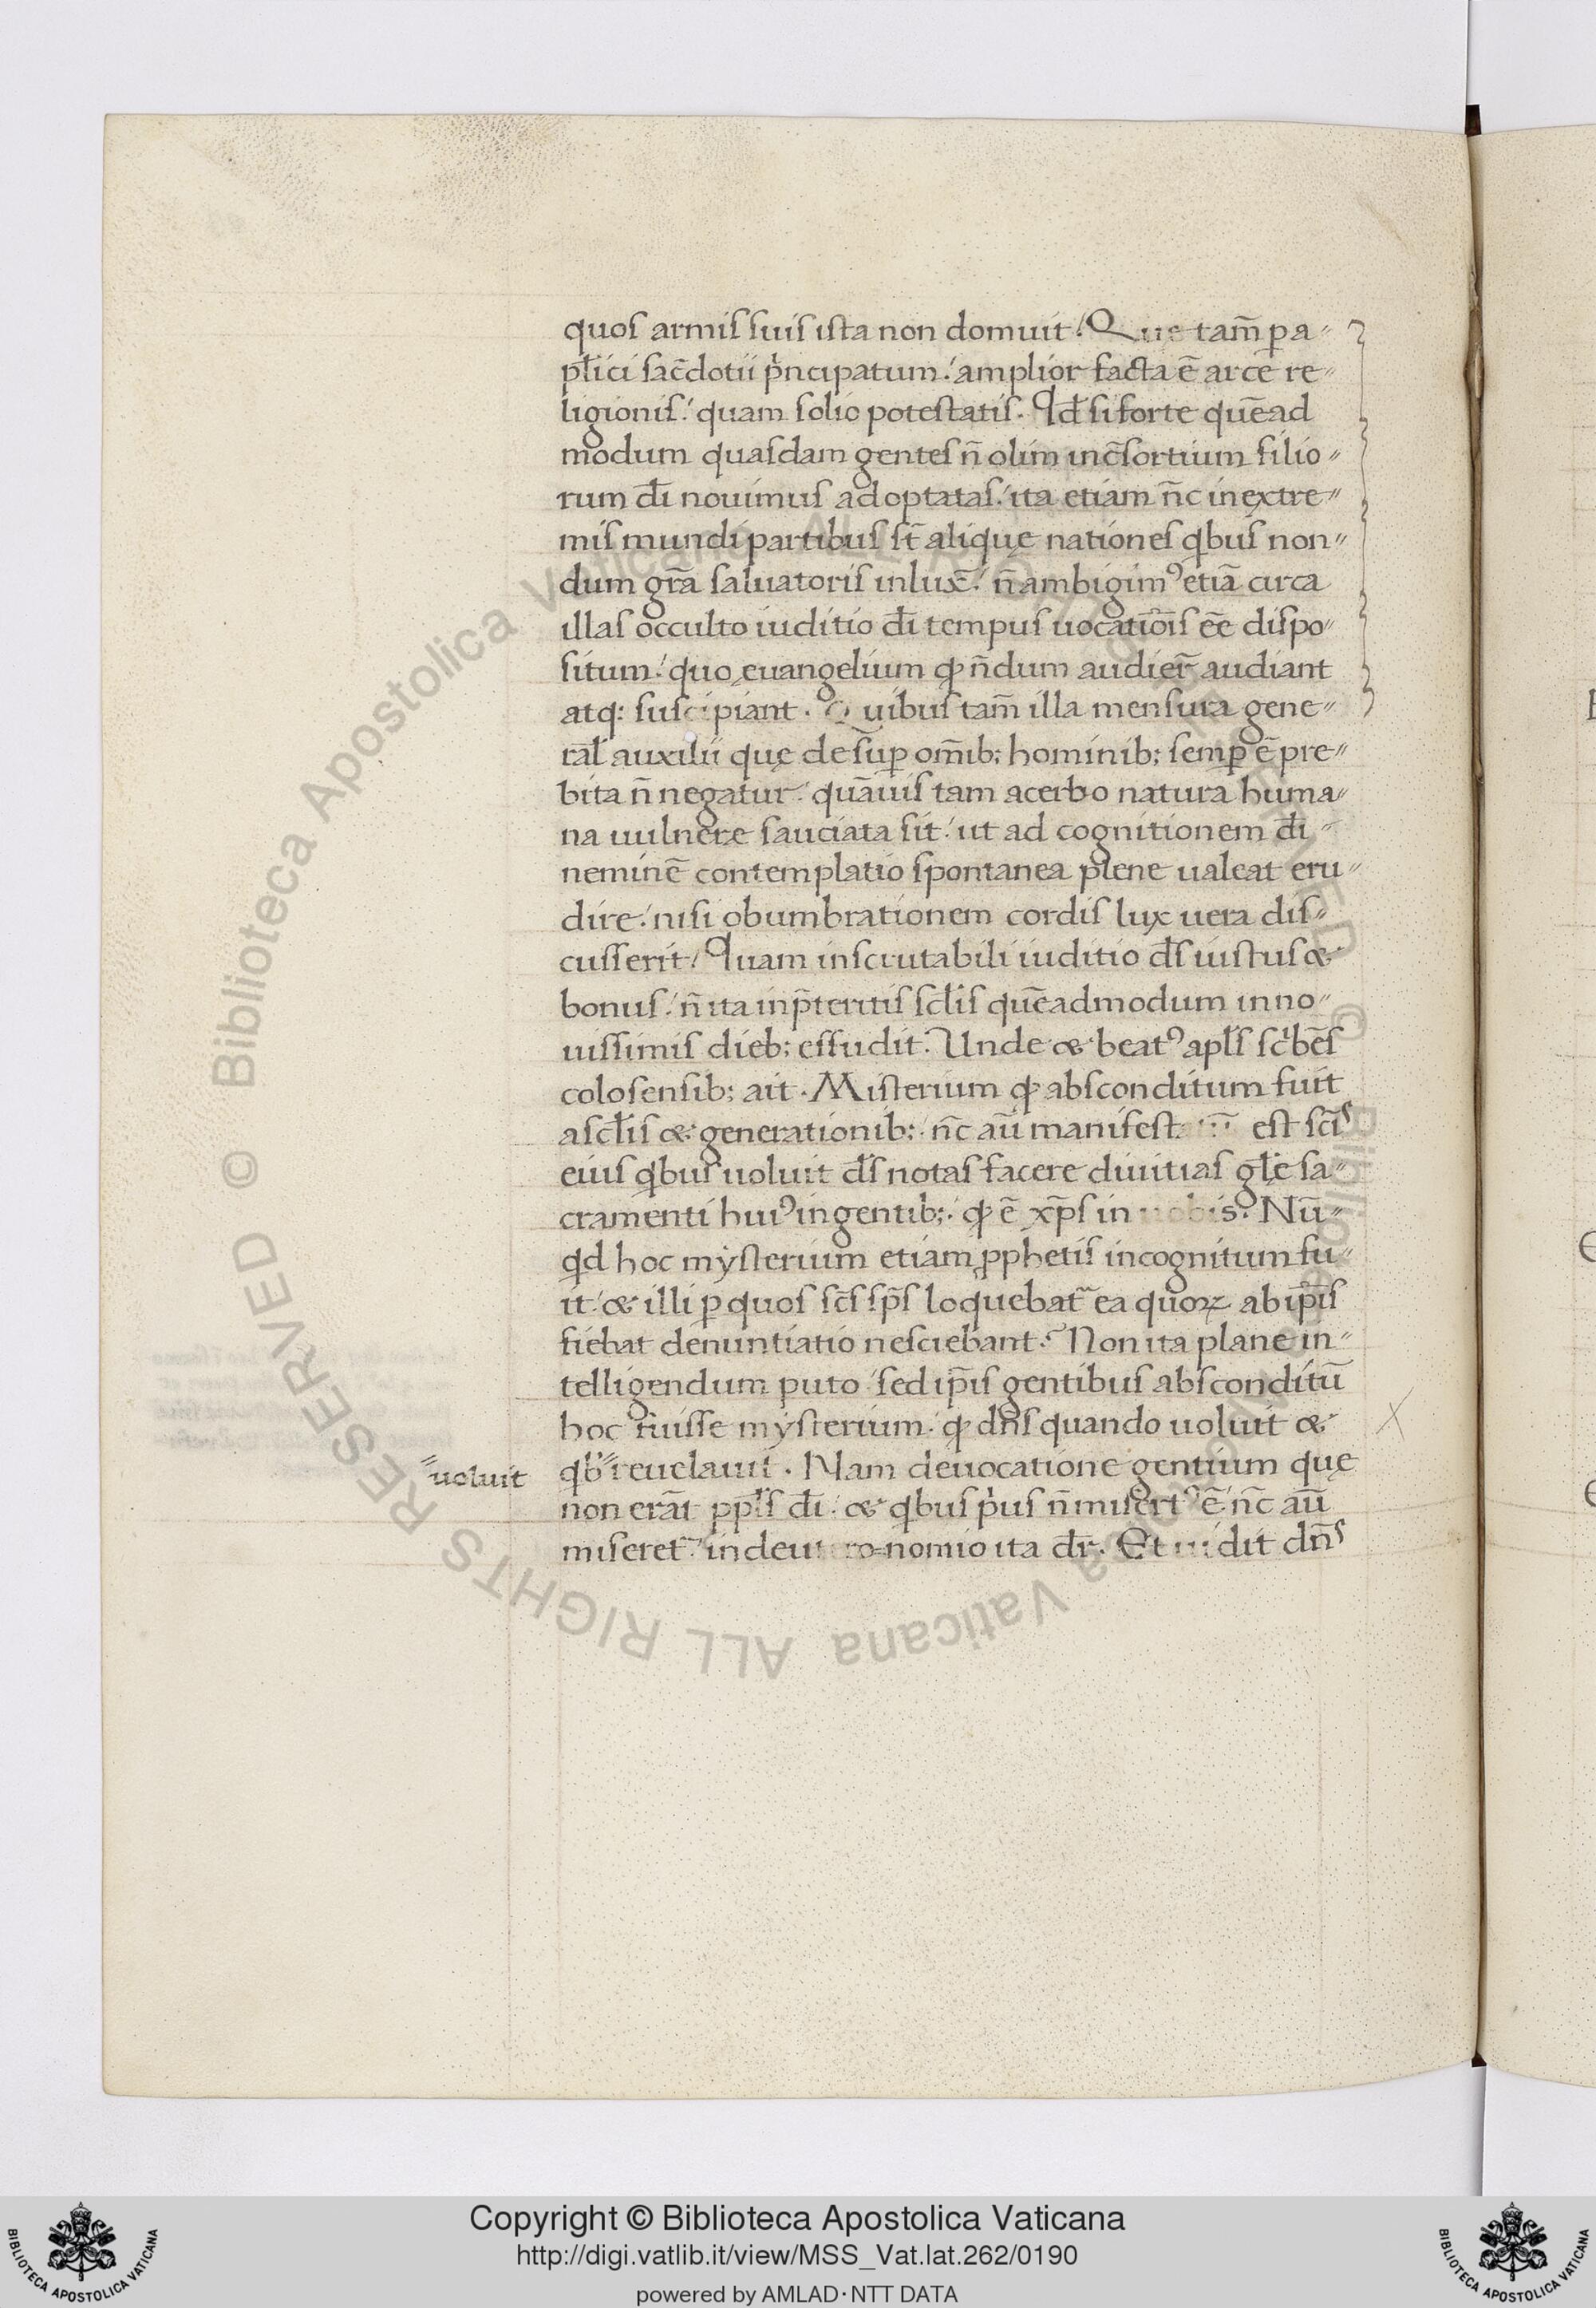 quoſ armiſ ſuiſ iſta non domuit / Que tam̄ ꝑ a〃
pl̄ici ſac̄dotii pͥncipatum.' amplior facta ē arce re〃
ligioniſ.' quam ſolio poteſtatiſ. Qd̄ ſi forte quē ad
modum quaſdam genteſ n̄ olim inc̄ſortium filio〃
rum dī nouimuſ adoptataſ.' ita etiam n̄c in extre〃
miſ mundi partibuſ ſt̄ alique nationeſ qͥbuſ non〃
dum gr̄a ſaluatoriſ inluxē.' n̄ ambigim᾽ etiā circa
illaſ occulto iuditio dī tempuſ uocatiōıſ eē̄ diſpo〃
ſitum.' quo euangelium ꝙ n̄dum audier̄ audiant
atq: ſuſcipiant. Quibuſ tam̄ illa menſura gene〃
rāl auxilii quę deſup̄ om̄ib; hominib; ſemꝑ ē pre〃
bita n̄ negatur.' quāuiſ tam acerbo natura huma〃
na uulnere ſauciata ſit.' ut ad cognitionem dī 〃
neminē contemplatio ſpontanea plene ualeat eru〃
dire.' niſi obumbrationem cordiſ lux uera diſ〃
cuſſerit / Quam inſcrutabili iuditio d̄ſ iuſtuſ &
bonuſ.' n̄ ita in p̄teritiſ ſcl̄iſ quēadmodum in no〃
uiſſimiſ dieb; effudit. Unde & beat᾽ apl̄ſ ſcͥbēſ
coloſenſib; ait. Miſterium ꝙ abſconditum fuit
aſcl̄iſ & generationib;.' n̄c aū manifeſtatū eſt ſc̄iſ
eiuſ qͥbuſ uoluit d̄ſ notaſ facere diuitiaſ gl̄ę ſa〃
cramenti hui᾽ in gentib;.' ꝙ ē xp̄ſ in uobis. Nū〃
qͥd hoc myſterium etiam ꝓphetiſ incognitum fu〃
it.' & illi ꝑ quoſ ſc̄ſ ſp̄ſ loquebat᷑ ea quoꝝ ab ip̄iſ
fiebat denuntiatio neſciebant. Non ita plane in〃
telligendum puto.' ſed ip̄iſ gentibuſ abſconditū
hoc fuiſſe myſterium.' ꝙ dn̄ſ quando uoluit &
〃uoluit
qͥb〃 reuelauit. Nam de uocatione gentium quę
non erāt pp̄l̄ſ dī.' & qͥbuſ pͥuſ n̄ miſert᾽ ē.' n̄c aū
miſeret᷑.' in deuteronomio ita dr̄. Et uidit dn̄ſ
Copyright © Biblioteca Apostolica Vaticana
http://digi.vatlib.it/view/MSS_Vat.lat.262/0190
powered by AMLAD·NTT DATA
BIBLIOTECA APOSTOLICA VATICANA
BIBLIOTECA APOSTOLICA VATICANA
© Biblioteca Apostolica Vaticana ALL RIGHTS RESERVED © Biblioteca Apostolica Vaticana ALL RIGHTS RESERVED